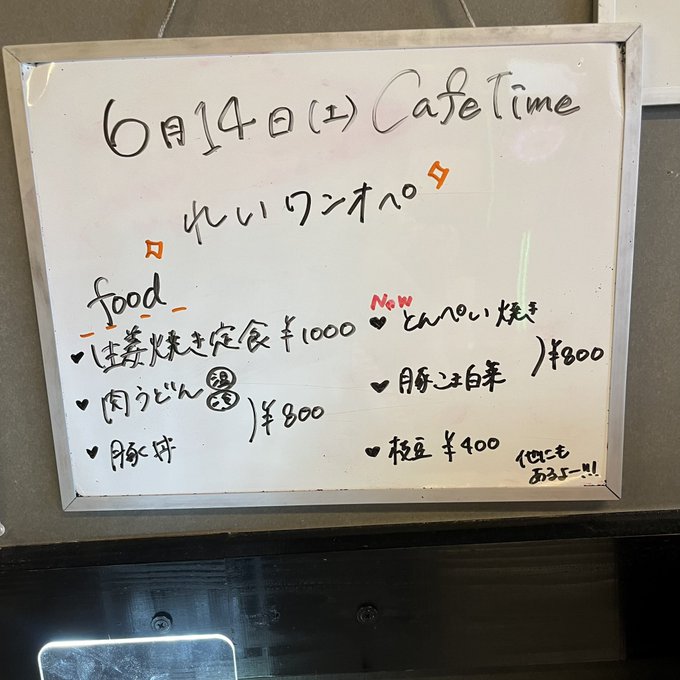 6月14日(土) Cafe Time
れいワンオペ
food
♥生姜焼き定食 ¥1000
♥肉うどん 温 冷
♥豚丼
)¥800
New
♥とんぺい焼き
♥豚こま白菜
)¥800
♥枝豆 ¥400
他にも
あるよー!!!